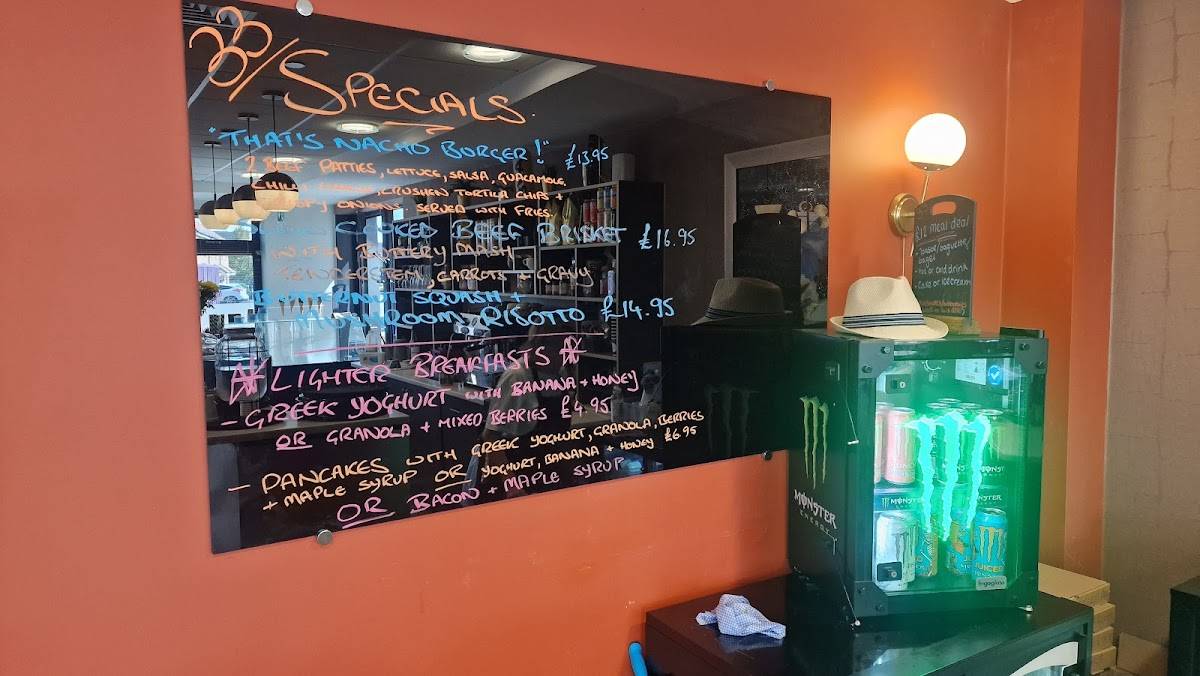 SPECIALS.
"THAT'S NACHO BURGER!" £13.95
2 BEEF PATTIES, LETTUCE, SALSA, GUACAMOLE,
CRUSHED TORTILA CHIPS +
ONIONS. SERVED WITH FRIES.
COOKED BEEF BRISKET £16.95
WITH BUTTERY MASH
TENDERSTEM, CARROTS + GRAVY
BUTTERNUT SQUASH +
MUSHROOM RISOTTO £14.95
LIGHTER BREAKFASTS
- GREEK YOGHURT WITH BANANA + HONEY
OR GRANOLA + MIXED BERRIES £4.95
- PANCAKES WITH GREEK YOGHURT, GRANOLA, BERRIES
+ MAPLE SYRUP OR YOGHURT, BANANA + HONEY £6.95
OR BACON + MAPLE SYRUP
£12 meal deal
- Toastie/baguette/
bagel
- Hot or cold drink
- Cake or ice cream
MONSTER
ENERGY
MONSTER
MONSTER
JUICED